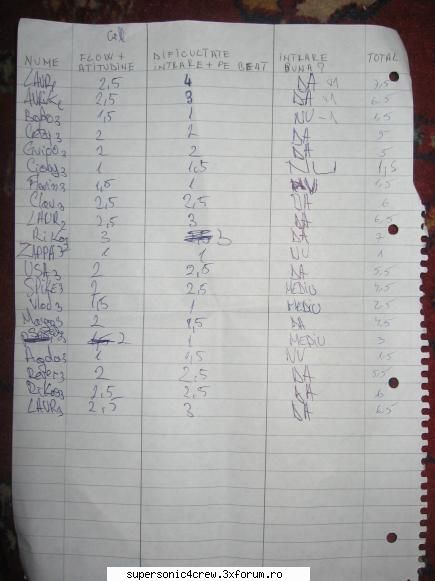 Call
NUME FLOW + ATITUDINE DIFICULTATE INTRARE + PE BEAT INTRARE BUNA? TOTAL
LAUR1 2,5 4 DA 7,5
2,5 3 DA 6,5
Bobo3 1,5 1 NU
2 2 DA 5
Guipo3 2 2 DA 5
1 1,5 NU 1,5
1,5 1 NU
2,5 2,5 DA 6
LAUR2 2,5 3 DA 6,5
Riko3 3 3 DA 7
ZIPPA3 1 1 NU 1
USA3 2 2,5 DA 5,5
SPIKE3 2 2,5 MEDIU 4,5
Vlad3 1,5 1 MEDIU 2,5
2 1,5 DA 4,5
2 1 MEDIU 3
1 1,5 NU 1.5
2 2,5 DA 5,5
Riko3 2,5 2,5 DA 6
LAUR3 2,5 3 DA 6.5
supersonic4crew.3xforum.ro